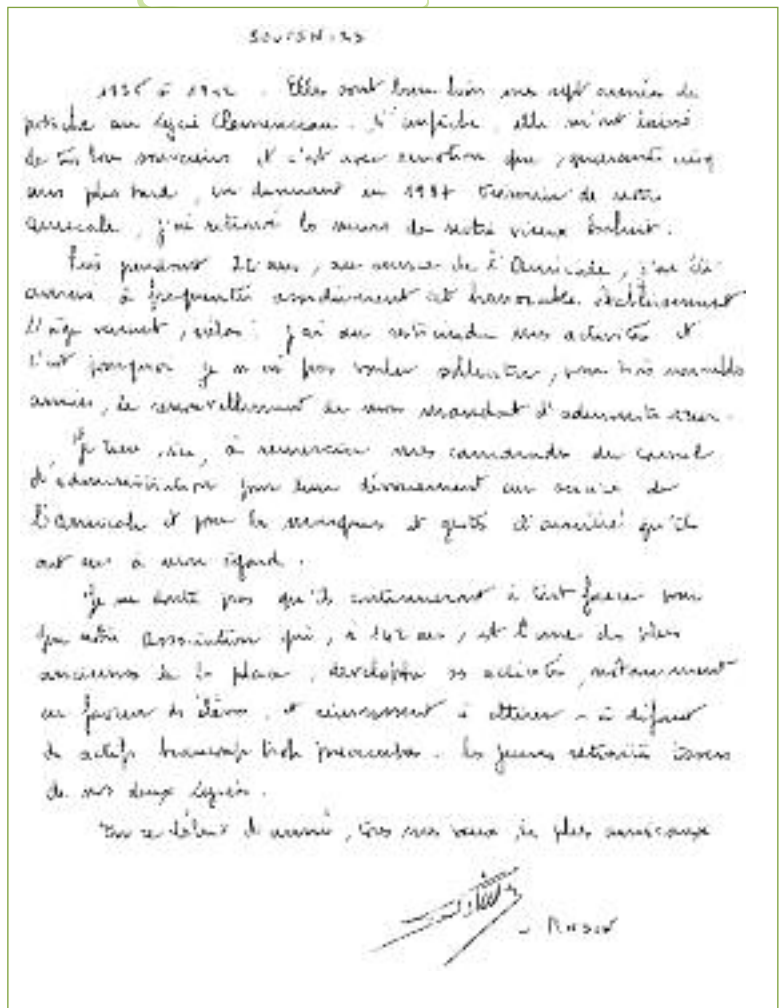 SOUVENIRS
1935 à 1942. Elles sont bien loin mes sept années de
potache au lycée Clemenceau. N'empêche, elles m'ont laissé
de très bons souvenirs et c'est avec émotion que, quarante cinq
ans plus tard, en devenant en 1987 trésorier de notre
Amicale, j'ai retrouvé les murs de notre vieux bahut.
Puis pendant 22 ans, au service de l'Amicale, j'ai été
amené à fréquenter assidûment cet honorable établissement
L'âge venant, hélas! j'ai dû restreindre mes activités et
c'est pourquoi je n'ai pas voulu solliciter, pour trois nouvelles
années, le renouvellement de mon mandat d'administrateur.
Je tiens, ici, à remercier mes camarades du Conseil
d'administration pour leur dévouement au service de
l'Amicale et pour les marques et gestes d'amitié qu'ils
ont eu à mon égard.
Je ne doute pas qu'ils continueront à tout faire pour
que notre association qui, à 142 ans, est l'une des plus
anciennes de la place, développe ses activités, notamment
en faveur des élèves, et réussissent à attirer - à défaut
des actifs beaucoup trop - les jeunes retraités issus
de nos deux lycées.
En ce début d'année, tous mes vœux les plus amicaux